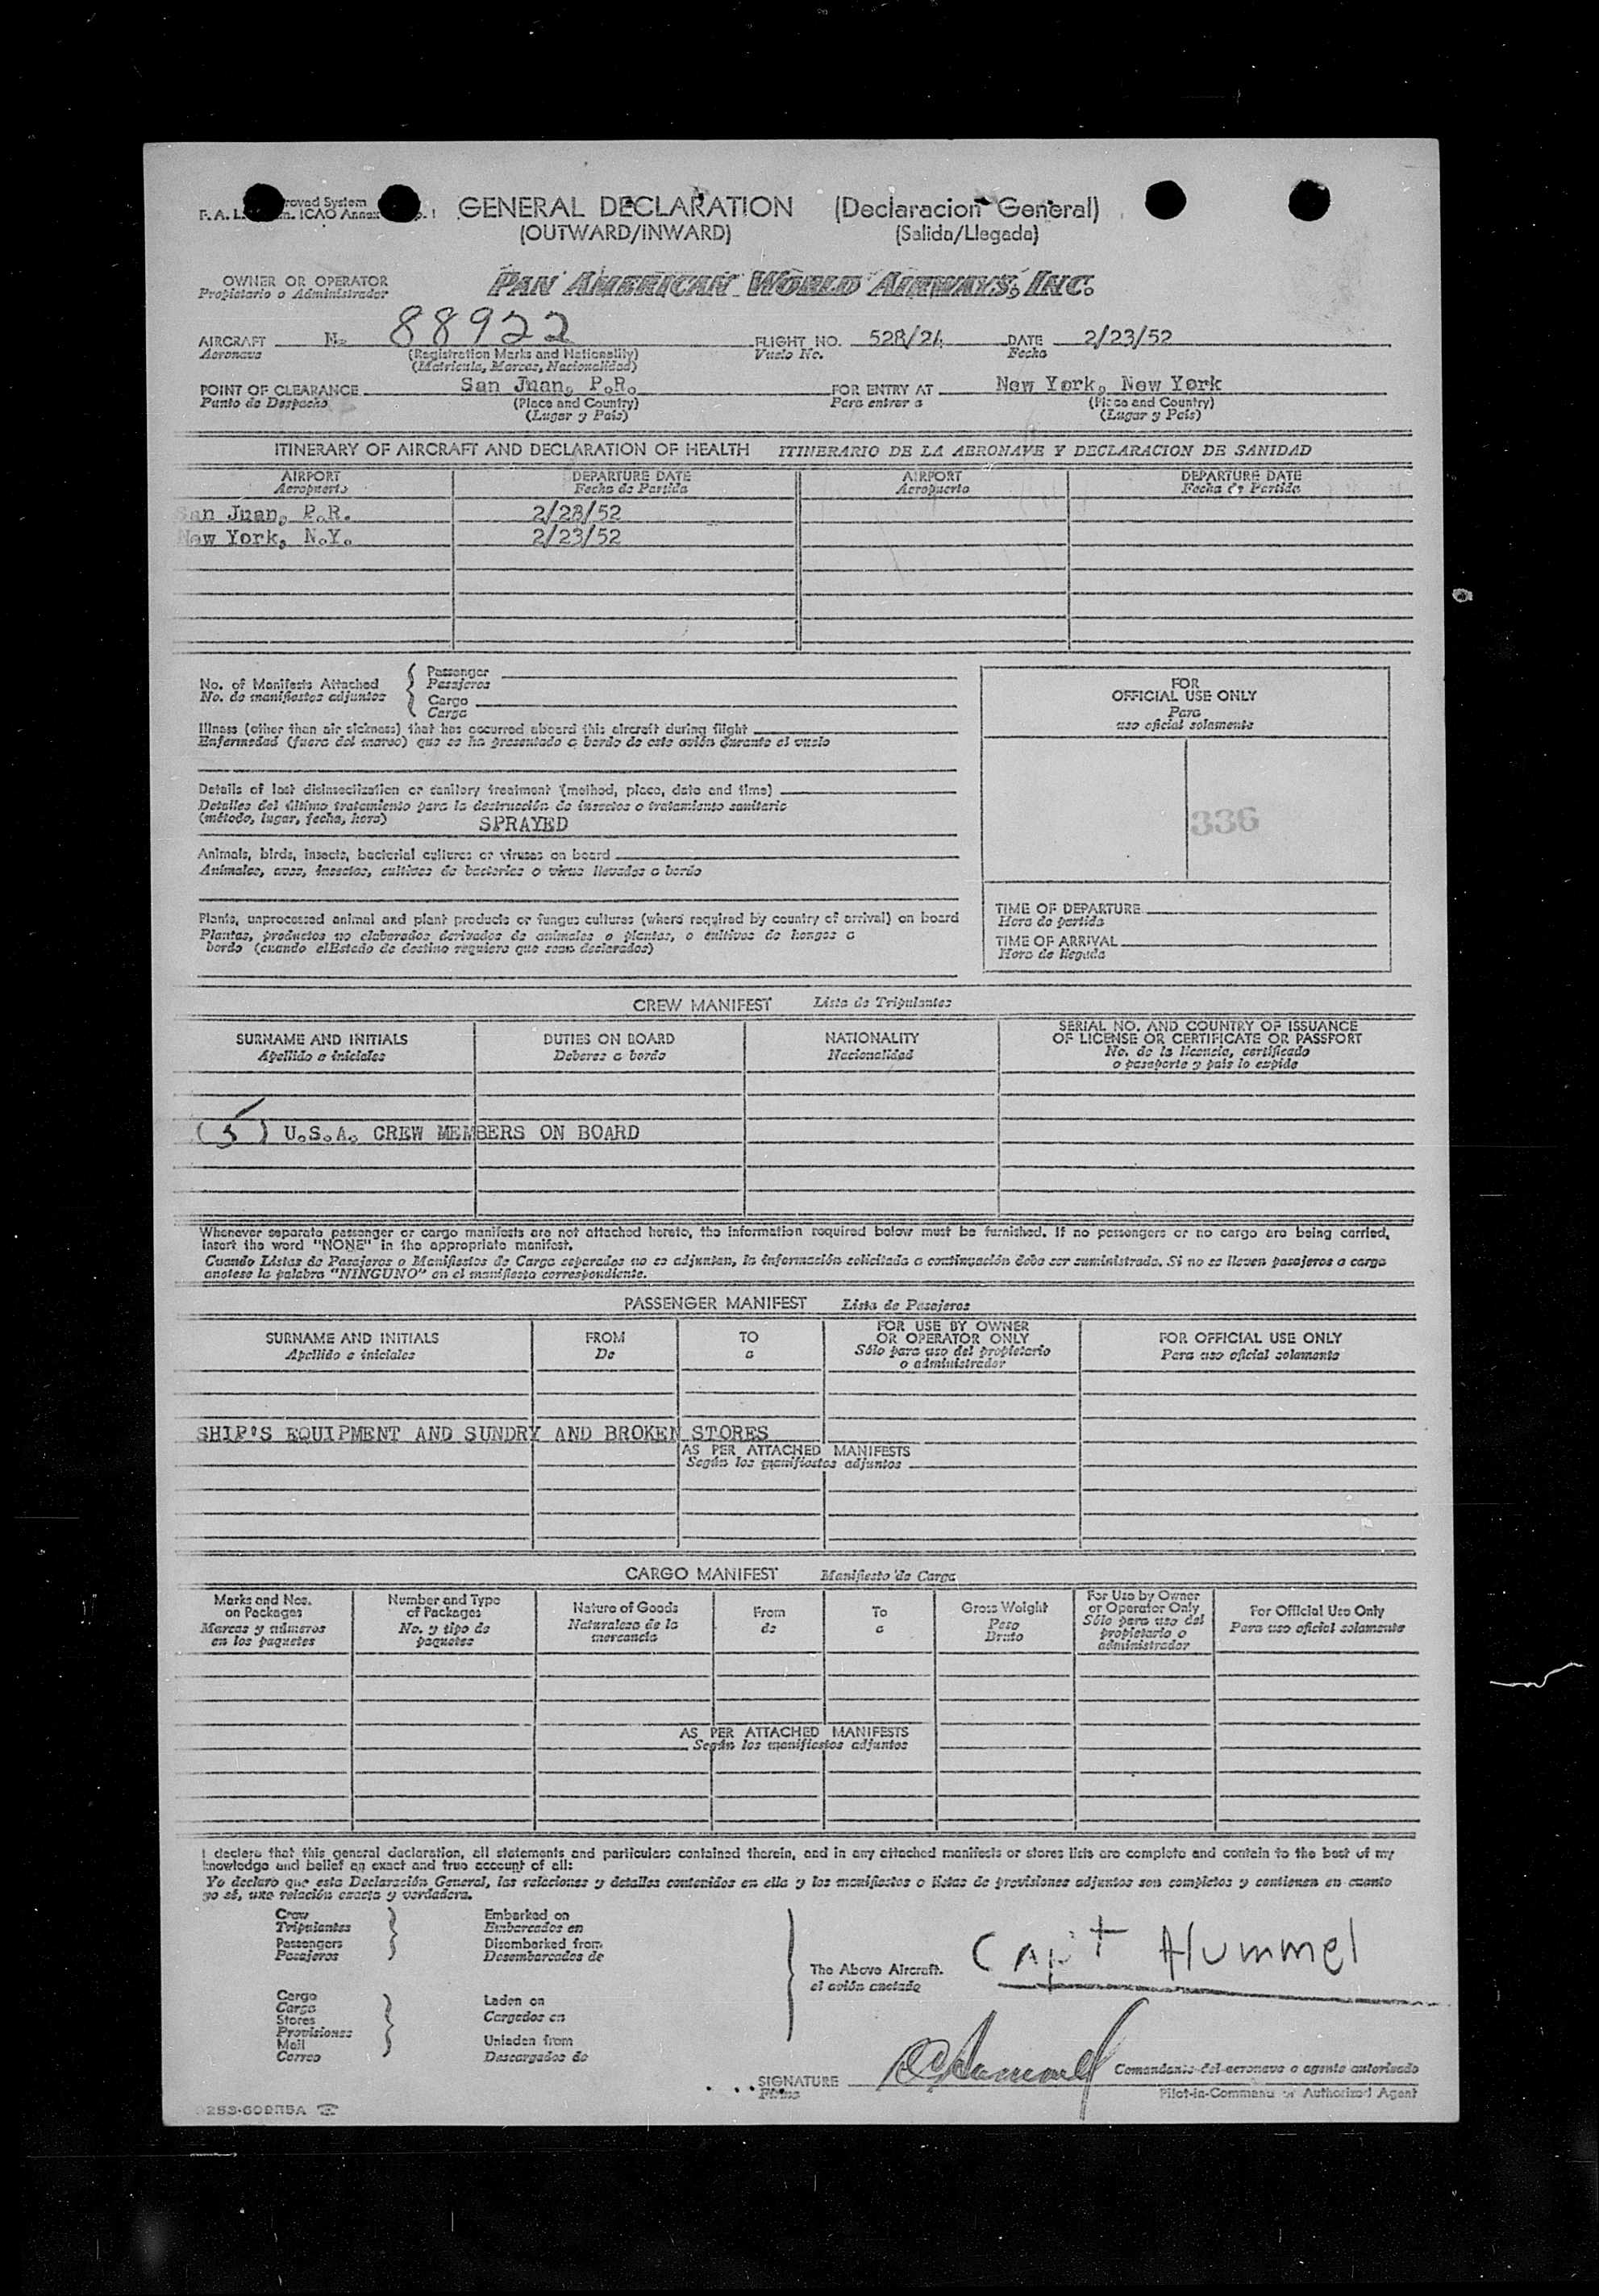 roved System
F. A. L. ICAO Annex
GENERAL DECLARATION (Declaracion General)
(OUTWARD/INWARD) (Salida/Llegada)
OWNER OR OPERATOR
Propietario o Administrador
PAN AMERICAN WORLD AIRWAYS, INC.
AIRCRAFT N- 88922 FLIGHT NO. 528/24 DATE 2/23/52
Aeronave (Registration Marks and Nationality) Vuelo No. Fecha
(Matricula, Marcas, Nacionalidad)
POINT OF CLEARANCE San Juan, P.R. FOR ENTRY AT New York, New York
Punto de Despacho (Place and Country) Para entrar a (Place and Country)
(Lugar y Pais) (Lugar y Pais)
ITINERARY OF AIRCRAFT AND DECLARATION OF HEALTH ITINERARIO DE LA AERONAVE Y DECLARACION DE SANIDAD
AIRPORT DEPARTURE DATE AIRPORT DEPARTURE DATE
Aeropuerto Fecha de Partida Aeropuerto Fecha de Partida
San Juan, P.R. 2/23/52
New York, N.Y. 2/23/52
No. of Manifests Attached
No. de manifiestos adjuntos
Passenger
Pasajeros
Cargo
Carga
FOR
OFFICIAL USE ONLY
Para
uso oficial solamente
Illness (other than air sickness) that has occurred aboard this aircraft during flight
Enfermedad (fuera del mareo) que se ha presentado a bordo de este avión durante el vuelo
Details of last disinsectization or sanitary treatment (method, place, date and time)
Detalles del último tratamiento para la destrucción de insectos o tratamiento sanitario
(método, lugar, fecha, hora) SPRAYED
336
Animals, birds, insects, bacterial cultures or viruses on board
Animales, aves, insectos, cultivos de bacterias o virus llevados a bordo
Plants, unprocessed animal and plant products or fungus cultures (where required by country of arrival) on board
Plantas, productos no elaborados derivados de animales o plantas, o cultivos de hongos a
bordo (cuando elEstado de destino requiera que sean declarados)
TIME OF DEPARTURE
Hora de partida
TIME OF ARRIVAL
Hora de llegada
CREW MANIFEST Lista de Tripulantes
SURNAME AND INITIALS DUTIES ON BOARD NATIONALITY SERIAL NO. AND COUNTRY OF ISSUANCE
OF LICENSE OR CERTIFICATE OR PASSPORT
Apellido e iniciales Deberes a bordo Nacionalidad No. de la licencia, certificado
o pasaporte y pais lo expide
(5) U.S.A. CREW MEMBERS ON BOARD
Whenever separate passenger or cargo manifests are not attached hereto, the information required below must be furnished. If no passengers or no cargo are being carried,
insert the word "NONE" in the appropriate manifest.
Cuando Listas de Pasajeros o Manifiestos de Carga separados no se adjuntan, la información solicitada a continuación debe ser suministrada. Si no se lleven pasajeros o carga
anotese la palabra "NINGUNO" en el manifiesto correspondiente.
PASSENGER MANIFEST Lista de Pasajeros
SURNAME AND INITIALS FROM TO FOR USE BY OWNER
OR OPERATOR ONLY FOR OFFICIAL USE ONLY
Apellido e iniciales De a Sólo para uso del propietario
o administrador Para uso oficial solamente
SHIP'S EQUIPMENT AND SUNDRY AND BROKEN STORES
AS PER ATTACHED MANIFESTS
Según los manifiestos adjuntos
CARGO MANIFEST Manifiesto de Carga
Marks and Nos.
on Packages
Marcas y números
en los paquetes
Number and Type
of Packages
No. y tipo de
paquetes
Nature of Goods
Naturaleza de la
mercancia
From
de
To
a
Gross Weight
Peso
Bruto
For Use by Owner
or Operator Only
Sólo para uso del
propietario o
administrador
For Official Use Only
Para uso oficial solamente
AS PER ATTACHED MANIFESTS
Según los manifiestos adjuntos
I declare that this general declaration, all statements and particulars contained therein, and in any attached manifests or stores lists are complete and contain to the best of my
knowledge and belief an exact and true account of all:
Yo declaro que esta Declaración General, las relaciones y detalles contenidos en ella y los manifiestos o listas de provisiones adjuntos son completos y contienen en cuanto
yo sé, una relación exacta y verdadera.
Crew
Tripulantes
Passengers
Pasajeros
Embarked on
Embarcados en
Disembarked from
Desembarcados de
Cargo
Carga
Stores
Provisiones
Mail
Correo
Laden on
Cargados en
Unladen from
Descargados de
The Above Aircraft.
el avión anotado
Capt Hummel
SIGNATURE
Firma
Comandante del aeronave o agente autorizado
Pilot-in-Command or Authorized Agent